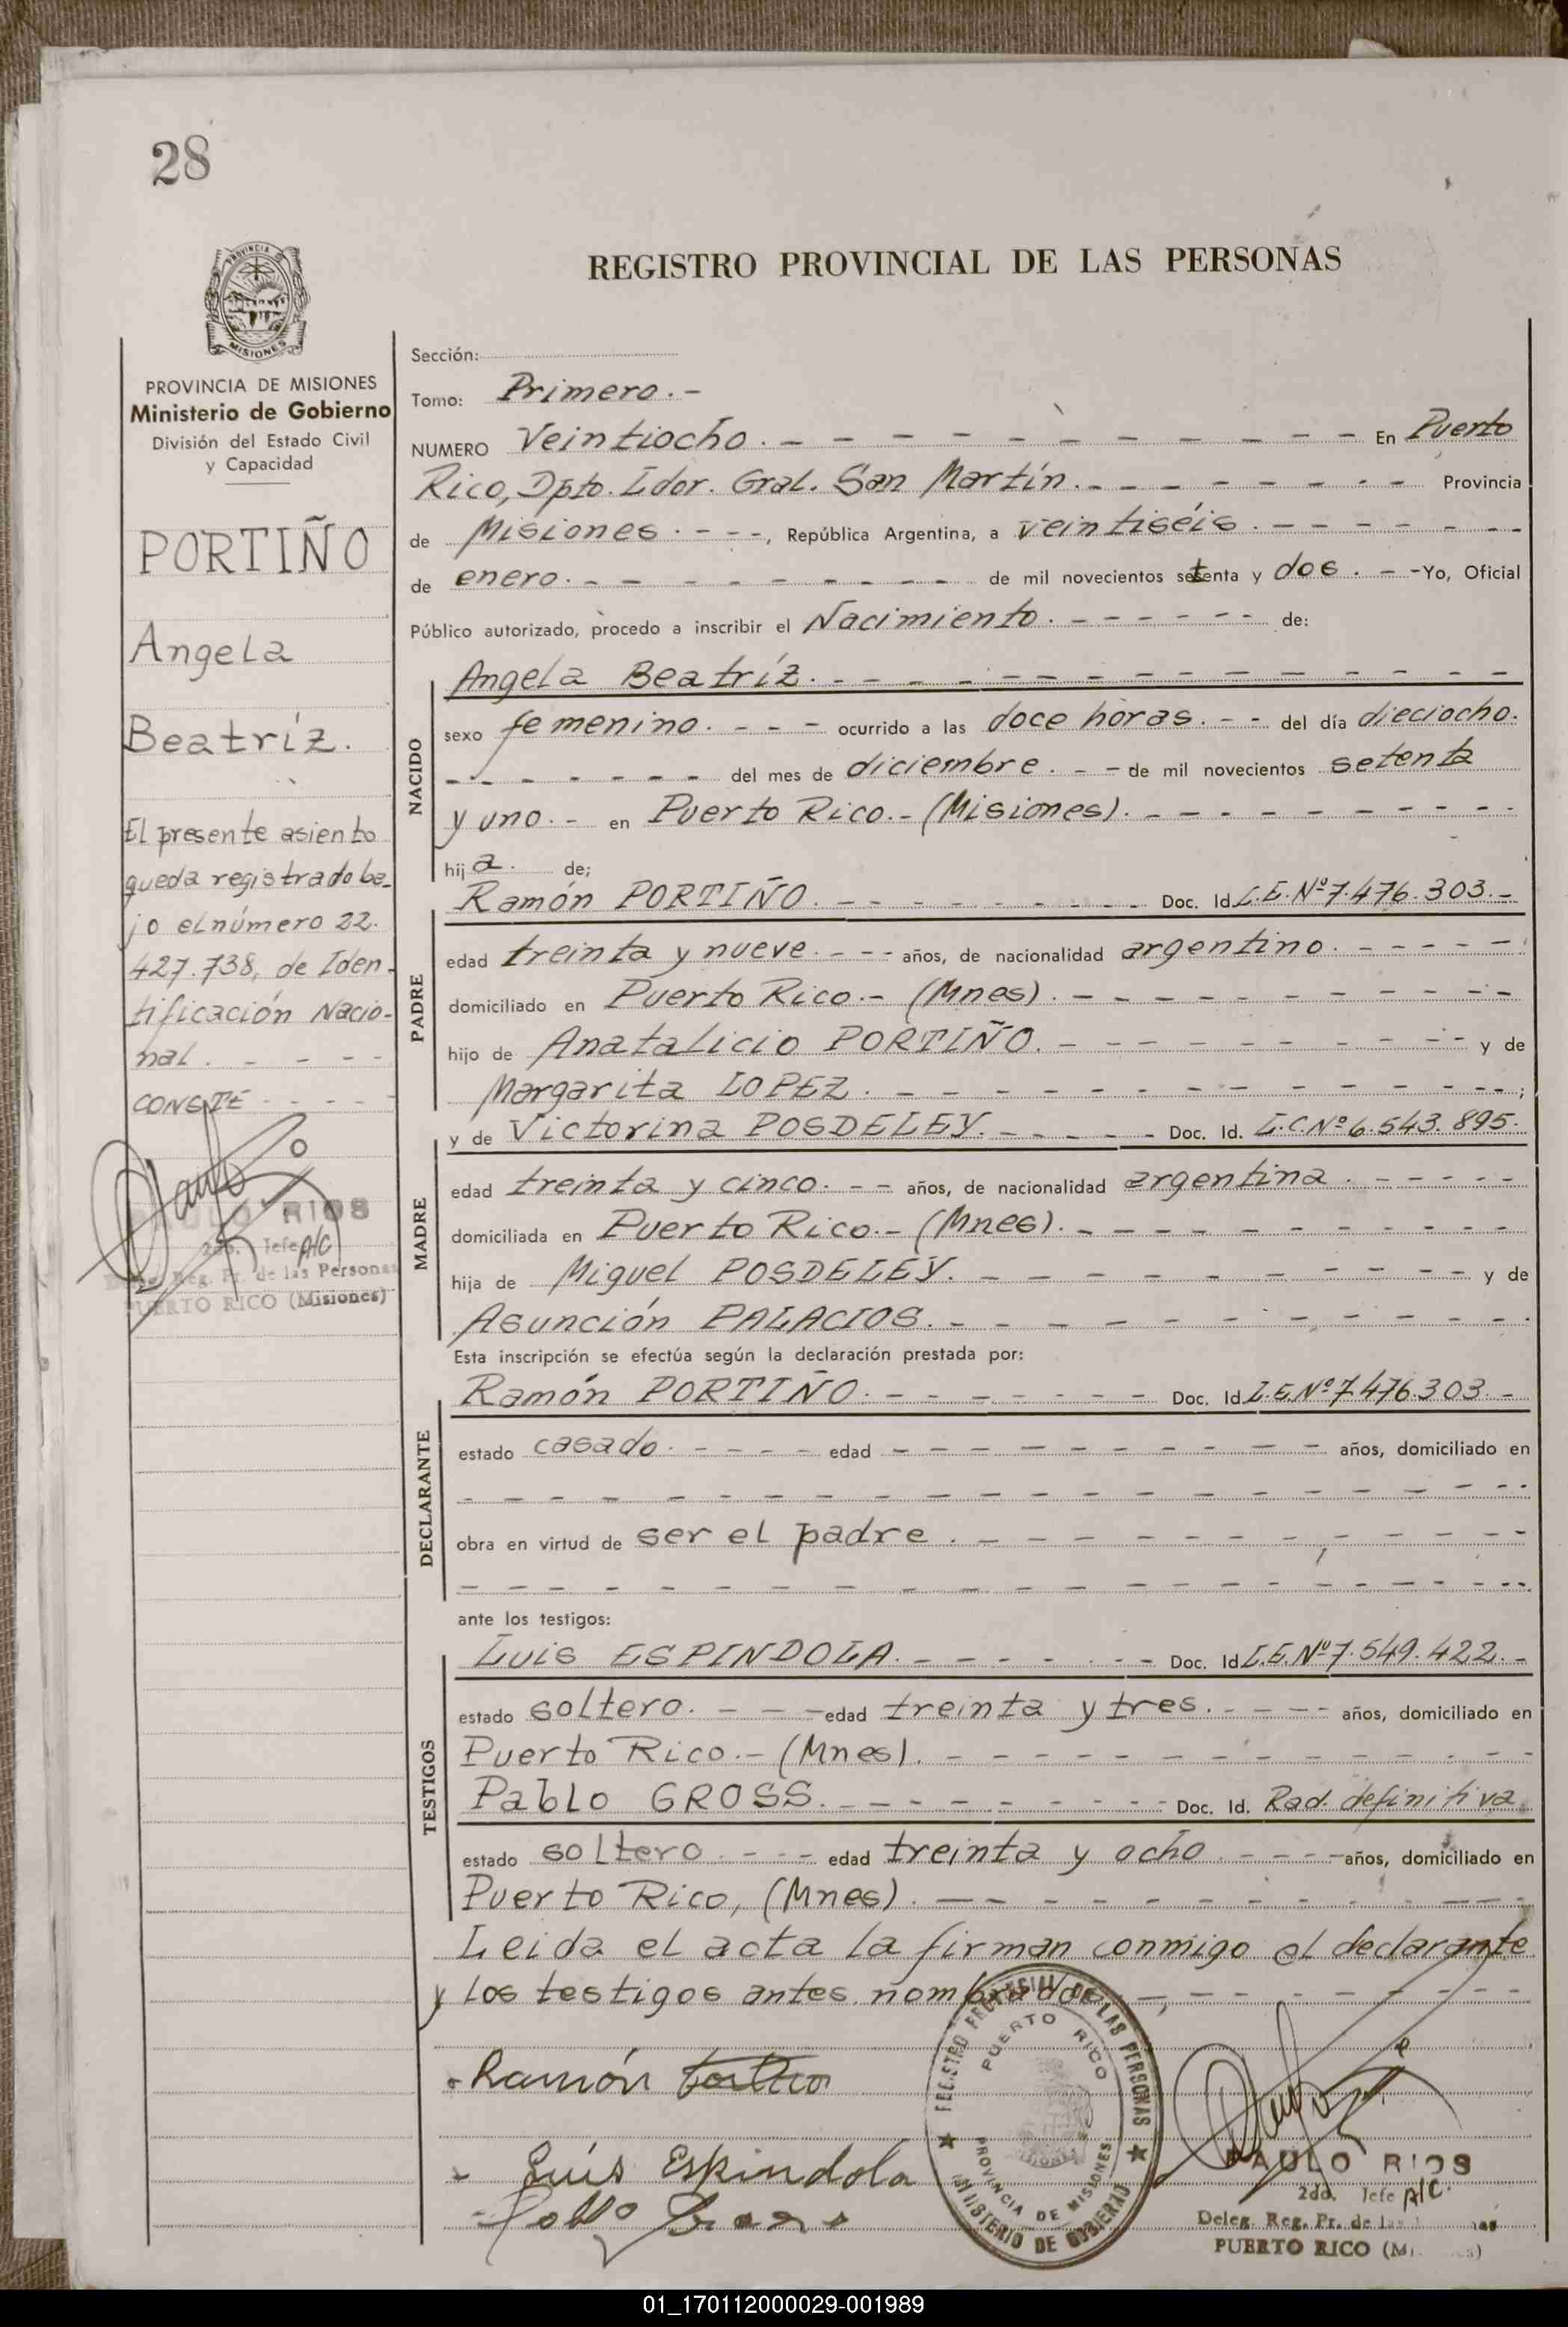 28
PROVINCIA
MISIONES
PROVINCIA DE MISIONES
Ministerio de Gobierno
División del Estado Civil
y Capacidad
PORTIÑO
Angela
Beatríz.
El presente asiento
queda registrado ba-
jo el número 22.
427.738, de Iden-
tificación Nacio-
nal. - - - -
CONSTE - - - -
PAULO RIOS
2do. Jefe A/C
Deleg. Reg. Pr. de las Personas
PUERTO RICO (Misiones)
REGISTRO PROVINCIAL DE LAS PERSONAS
Sección:
Tomo: Primero.-
NUMERO Veintiocho. - - - - - - - - - - - En Puerto
Rico, Dpto. Ldor. Gral. San Martín. - - - - - - - Provincia
de Misiones. - - -, República Argentina, a veintiséis. - - - - - -
de enero. - - - - - - - - - de mil novecientos setenta y dos. - - Yo, Oficial
Público autorizado, procedo a inscribir el Nacimiento. - - - - - - de:
NACIDO
Angela Beatríz. - - - - - - - - - - - - - -
sexo femenino. - - - ocurrido a las doce horas. - - del día dieciocho.
- - - - - - - del mes de diciembre. - - de mil novecientos setenta
y uno. - en Puerto Rico.- (Misiones). - - - - - - - - -
hija. de;
PADRE
Ramón PORTIÑO. - - - - - - - - Doc. Id. L.E.Nº 7.476.303.-
edad treinta y nueve. - - - años, de nacionalidad argentino. - - - - -
domiciliado en Puerto Rico.- (Mnes). - - - - - - - - - -
hijo de Anatalicio PORTIÑO. - - - - - - - - - - y de
Margarita LOPEZ. - - - - - - - - - - - - - - ;
MADRE
y de Victorina POSDELEY. - - - - - Doc. Id. L.C.Nº 6.543.895.
edad treinta y cinco. - - años, de nacionalidad argentina. - - - - -
domiciliada en Puerto Rico.- (Mnes). - - - - - - - - - -
hija de Miguel POSDELEY. - - - - - - - - - - y de
Asunción PALACIOS. - - - - - - - - - - - -
Esta inscripción se efectúa según la declaración prestada por:
DECLARANTE
Ramón PORTIÑO. - - - - - - - Doc. Id. L.E.Nº 7.476.303.-
estado casado. - - - - edad - - - - - - - - - - años, domiciliado en
- - - - - - - - - - - - - - - - - - - -
obra en virtud de ser el padre. - - - - - - - - - - -
- - - - - - - - - - - - - - - - - - - -
ante los testigos:
TESTIGOS
Luis ESPINDOLA. - - - - - - - Doc. Id. L.E.Nº 7.549.422.-
estado soltero. - - - edad treinta y tres. - - - - años, domiciliado en
Puerto Rico.- (Mnes). - - - - - - - - - - - -
Pablo GROSS. - - - - - - - - - Doc. Id. Rad. definitiva
estado soltero. - - - edad treinta y ocho. - - - - años, domiciliado en
Puerto Rico, (Mnes). - - - - - - - - - - - -
Leida el acta la firman conmigo el declarante
y los testigos antes nombrados. - - - - - - - -
Ramón
Luís Espindola
REGISTRO PROVINCIAL DE LAS PERSONAS
PUERTO RICO
PROVINCIA DE MISIONES
MINISTERIO DE GOBIERNO
PAULO RIOS
2do. Jefe A/C.
Deleg. Reg. Pr. de las
PUERTO RICO
01_170112000029-001989